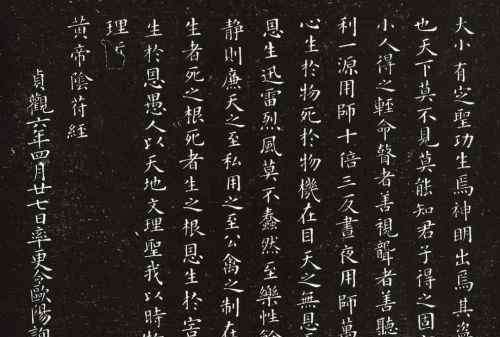 大小有定聖功生焉神明出焉其盜
也天下莫不見莫能知君子得之固
小人得之輕命瞽者善視聾者善聽
利一源用師十倍三反晝夜用師萬
心生於物死於物機在目天之無恩
恩生迅雷烈風莫不蠢然至樂性餘
静則廉天之至私用之至公禽之制在
生者死之根死者生之根恩生於害
生於恩愚人以天地文理聖我以時物
理
黃帝陰符經
貞觀六年四月廿七日率更令歐陽詢